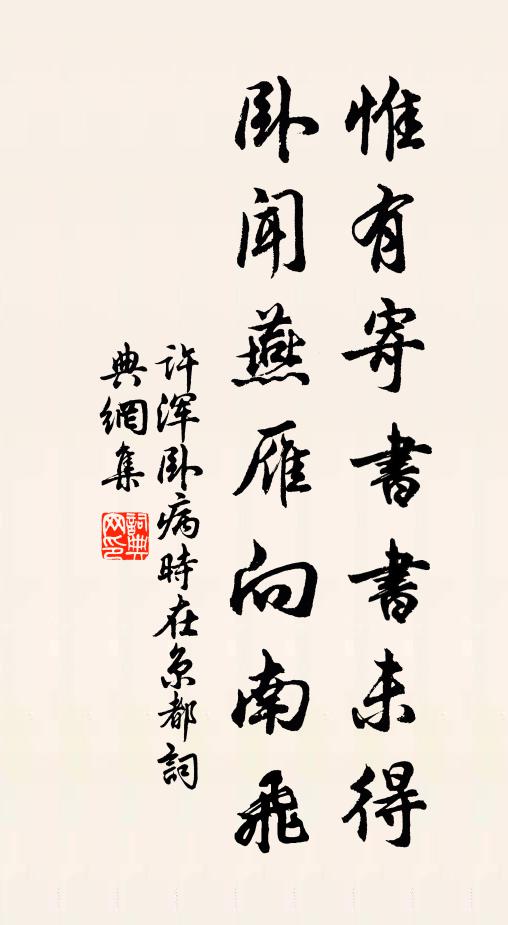 惟有寄書書未得
卧聞燕雁向南飛
许浑卧病時在京都詞
典網集
詞典
网印